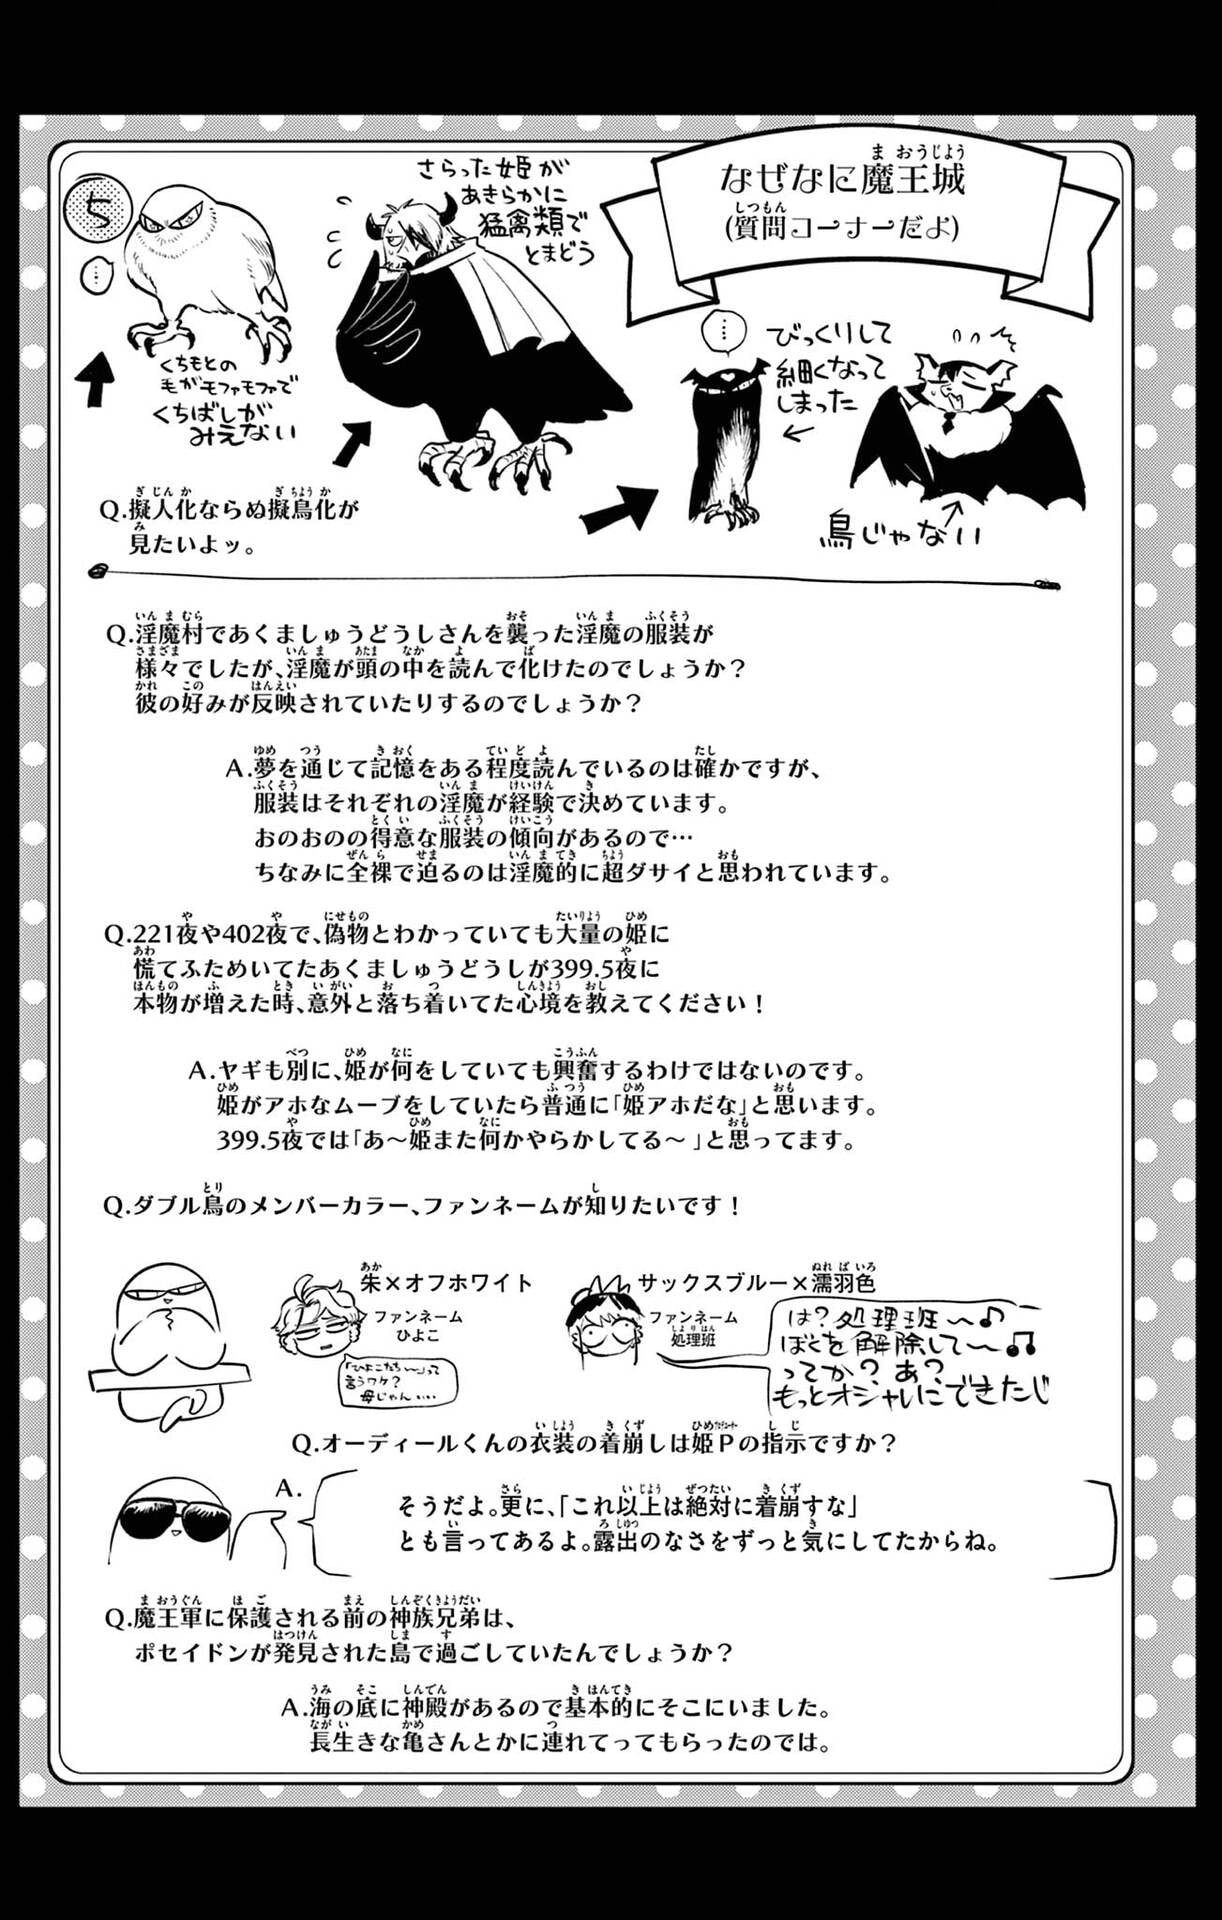 なぜなに魔王城
(質問コーナーだよ)
5
…
くちもとの
毛がモファモファで
くちばしが
みえない
さらった姫が
あきらかに
猛禽類で
とまどう
…
びっくりして
細くなって
しまった
鳥じゃない
Q.擬人化ならぬ擬鳥化が
見たいよッ。
Q.淫魔村であくましゅうどうしさんを襲った淫魔の服装が
様々でしたが、淫魔が頭の中を読んで化けたのでしょうか?
彼の好みが反映されていたりするのでしょうか?
A.夢を通じて記憶をある程度読んでいるのは確かですが、
服装はそれぞれの淫魔が経験で決めています。
おのおのの得意な服装の傾向があるので…
ちなみに全裸で迫るのは淫魔的に超ダサイと思われています。
Q.221夜や402夜で、偽物とわかっていても大量の姫に
慌てふためいてたあくましゅうどうしが399.5夜に
本物が増えた時、意外と落ち着いてた心境を教えてください!
A.ヤギも別に、姫が何をしていても興奮するわけではないのです。
姫がアホなムーブをしていたら普通に「姫アホだな」と思います。
399.5夜では「あ〜姫また何かやらかしてる〜」と思ってます。
Q.ダブル鳥のメンバーカラー、ファンネームが知りたいです!
朱×オフホワイト
ファンネーム
ひよこ
「ひよこたち〜」って
言うワケ?
母じゃん…
サックスブルー×濡羽色
ファンネーム
処理班
は?処理班〜♪
ぼくを解除して〜♫
ってか?あ?
もっとオシャレにできたじ
Q.オーディールくんの衣装の着崩しは姫Pの指示ですか?
A.
そうだよ。更に、「これ以上は絶対に着崩すな」
とも言ってあるよ。露出のなさをずっと気にしてたからね。
Q.魔王軍に保護される前の神族兄弟は、
ポセイドンが発見された島で過ごしていたんでしょうか?
A.海の底に神殿があるので基本的にそこにいました。
長生きな亀さんとかに連れてってもらったのでは。